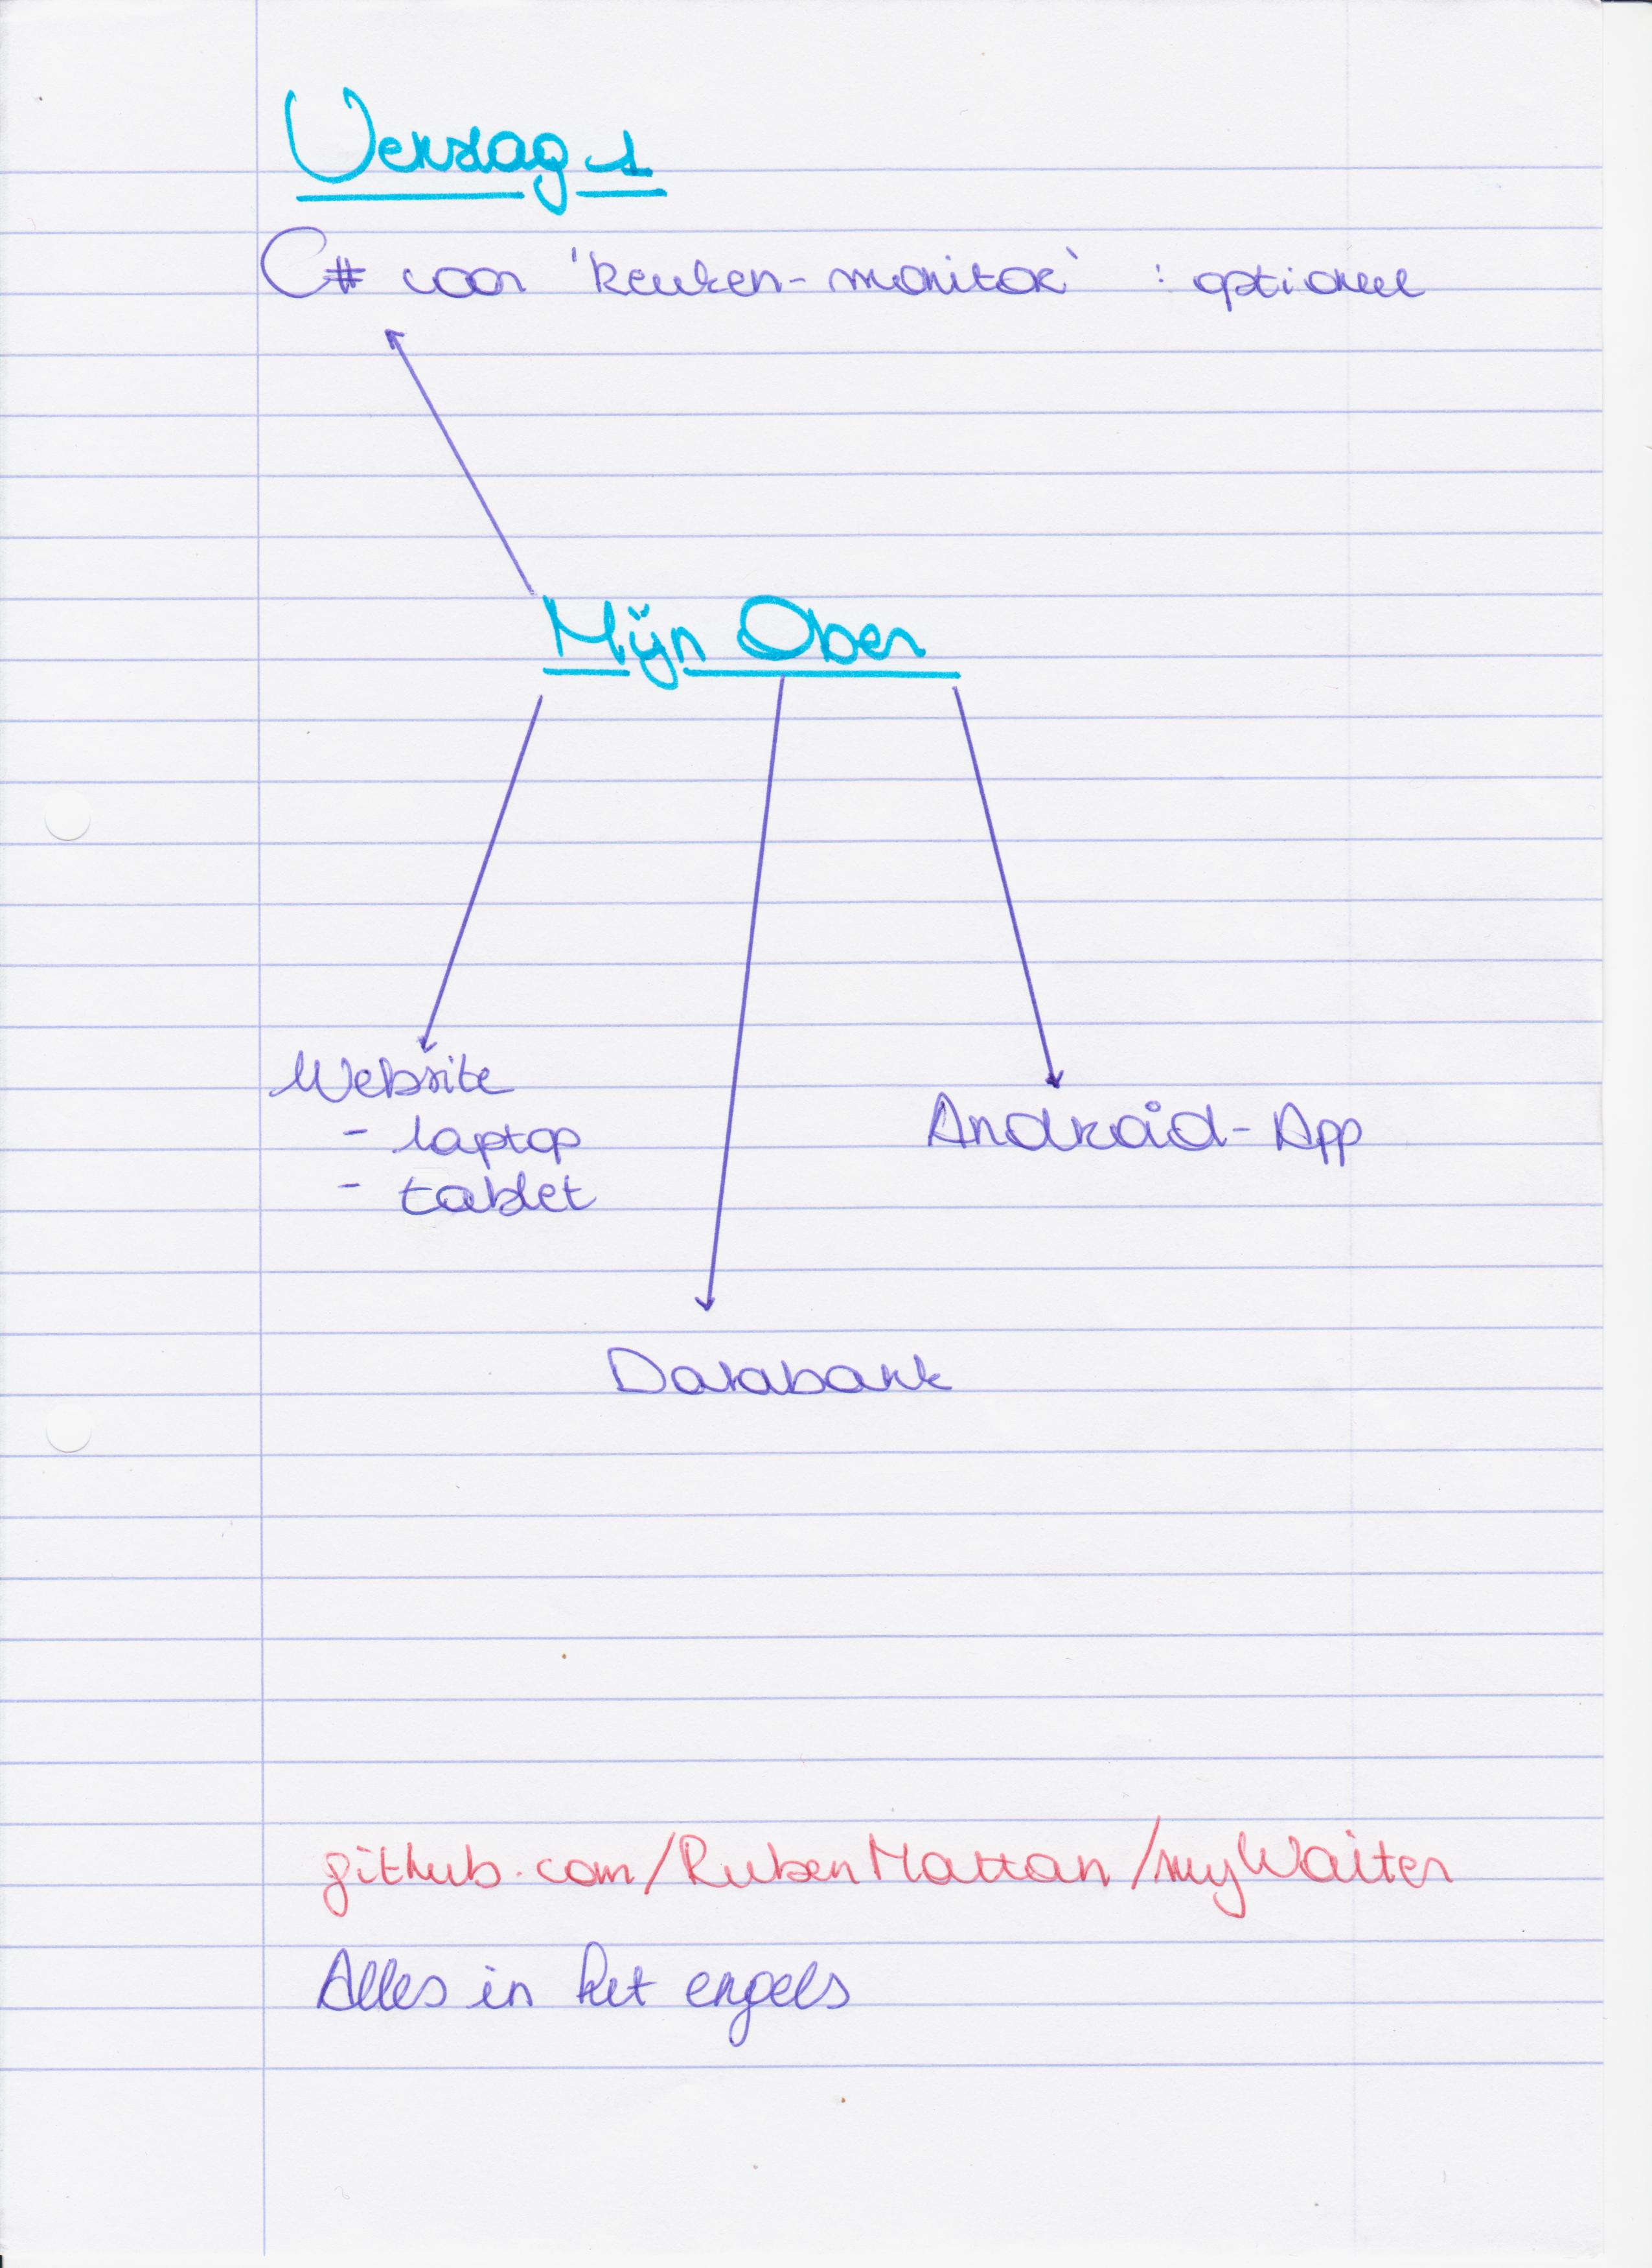 Verslag 1
C# voor 'keuken-monitor' : optioneel
Mijn Ober
Website
- laptop
- tablet
Android-App
Databank
github.com/RubenMattan/myWaiter
Alles in het engels